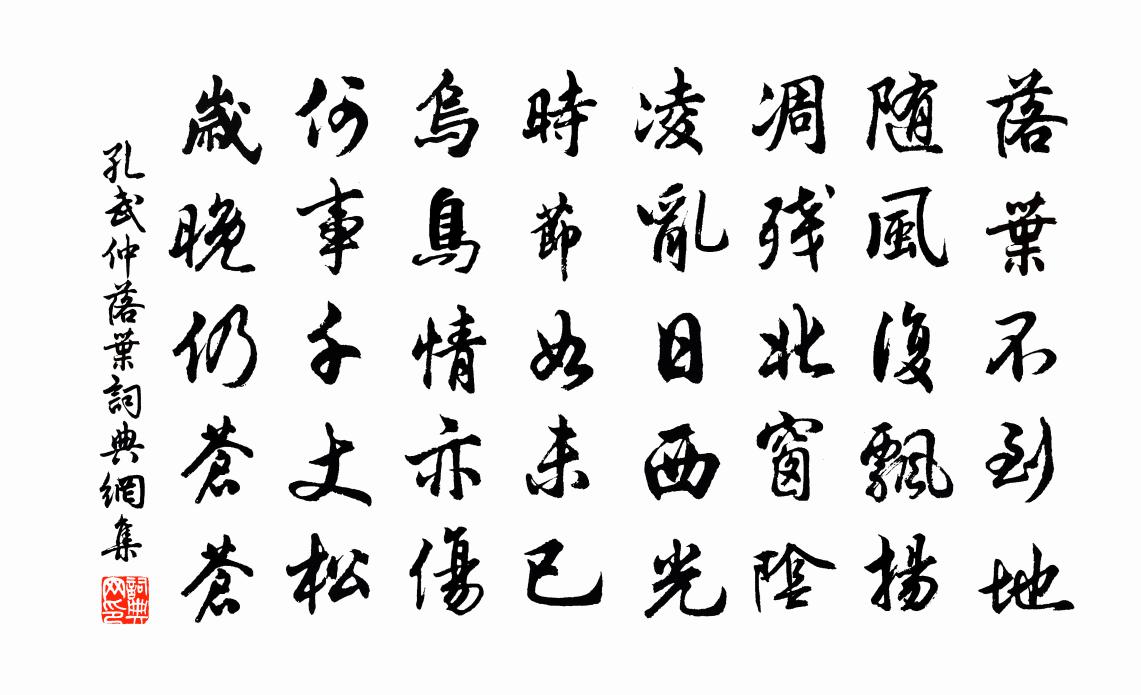 落葉不到地
随風復飄揚
凋残北窗陰
凌亂日西光
時節如未已
烏鳥情亦傷
何事千丈松
歲晚仍蒼蒼
孔武仲落葉詞典網集
詞典网印